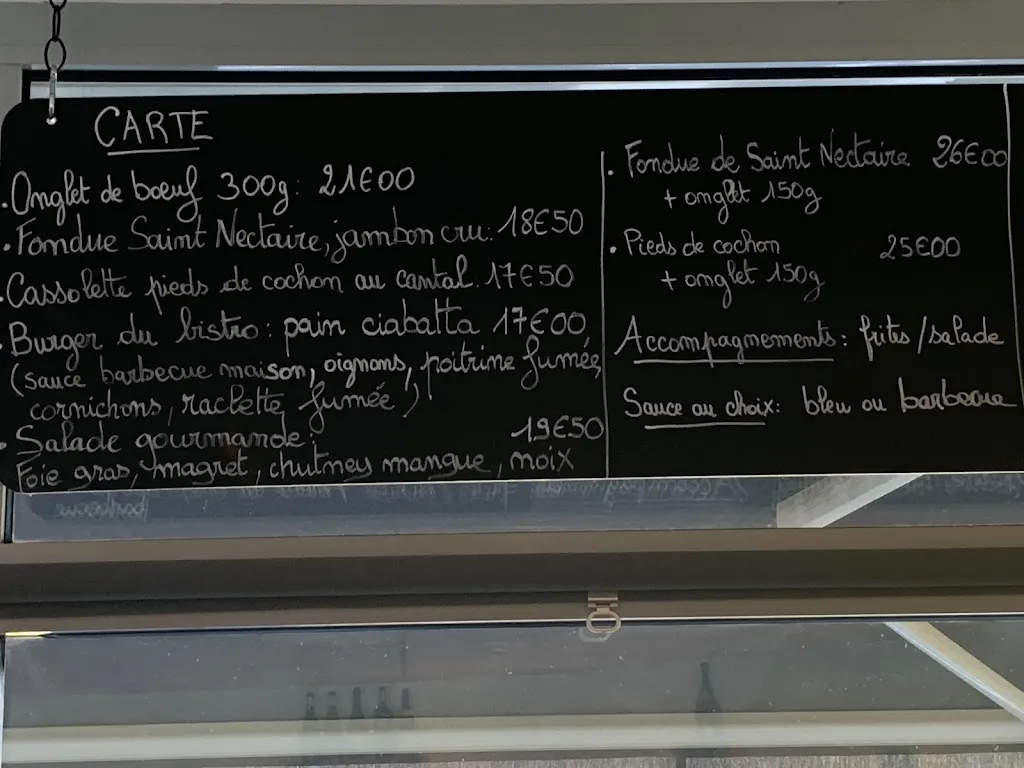 CARTE
. Onglet de bœuf 300g: 21€00
. Fondue Saint Nectaire, jambon cru: 18€50
. Cassolette pieds de cochon au cantal. 17€50
. Burger du bistro: pain ciabatta 17€00
(sauce barbecue maison, oignons, poitrine fumée,
cornichons, raclette fumée)
. Salade gourmande: 19€50
Foie gras, magret, chutney mangue, noix
. Fondue de Saint Nectaire 26€00
+ onglet 150g
. Pieds de cochon 25€00
+ onglet 150g
Accompagnements: frites/salade
Sauce au choix: bleu ou barbecue